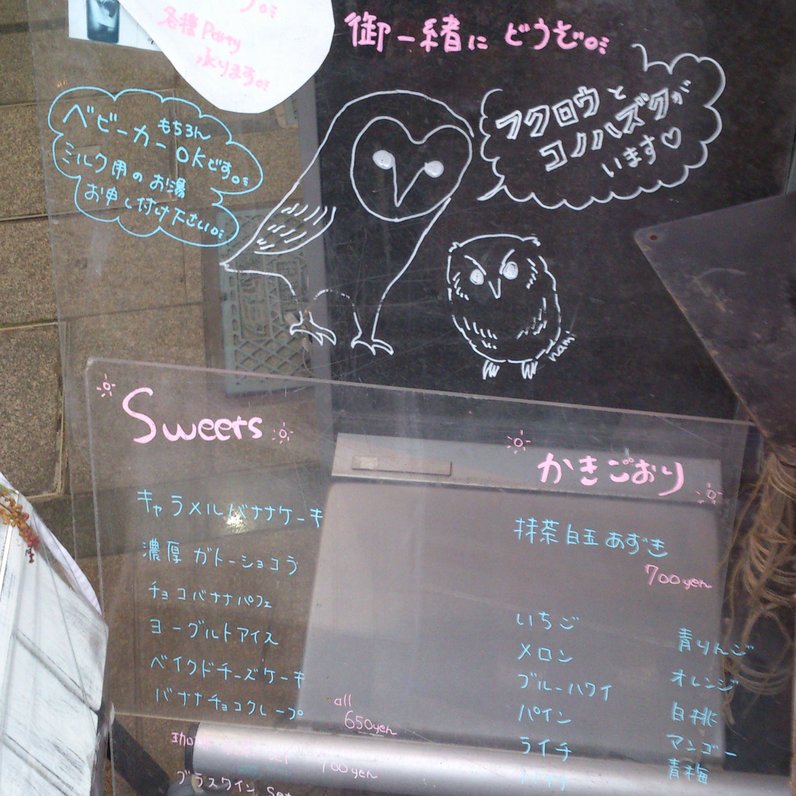 各種Party
承ります。
御一緒に どうぞ。
ベビーカー もちろん
OKです。
ミルク用のお湯
お申し付け下さい。
フクロウと
コノハズクが
います♡
nami
Sweets
キャラメルバナナケーキ
濃厚 ガトーショコラ
チョコバナナパフェ
ヨーグルトアイス
ベイクドチーズケーキ
バナナチョコクレープ
all
650yen
700yen
グラスワイン Set
かきごおり
抹茶白玉あずき
700yen
いちご
メロン
ブルーハワイ
パイン
ライチ
青りんご
オレンジ
白桃
マンゴー
青梅